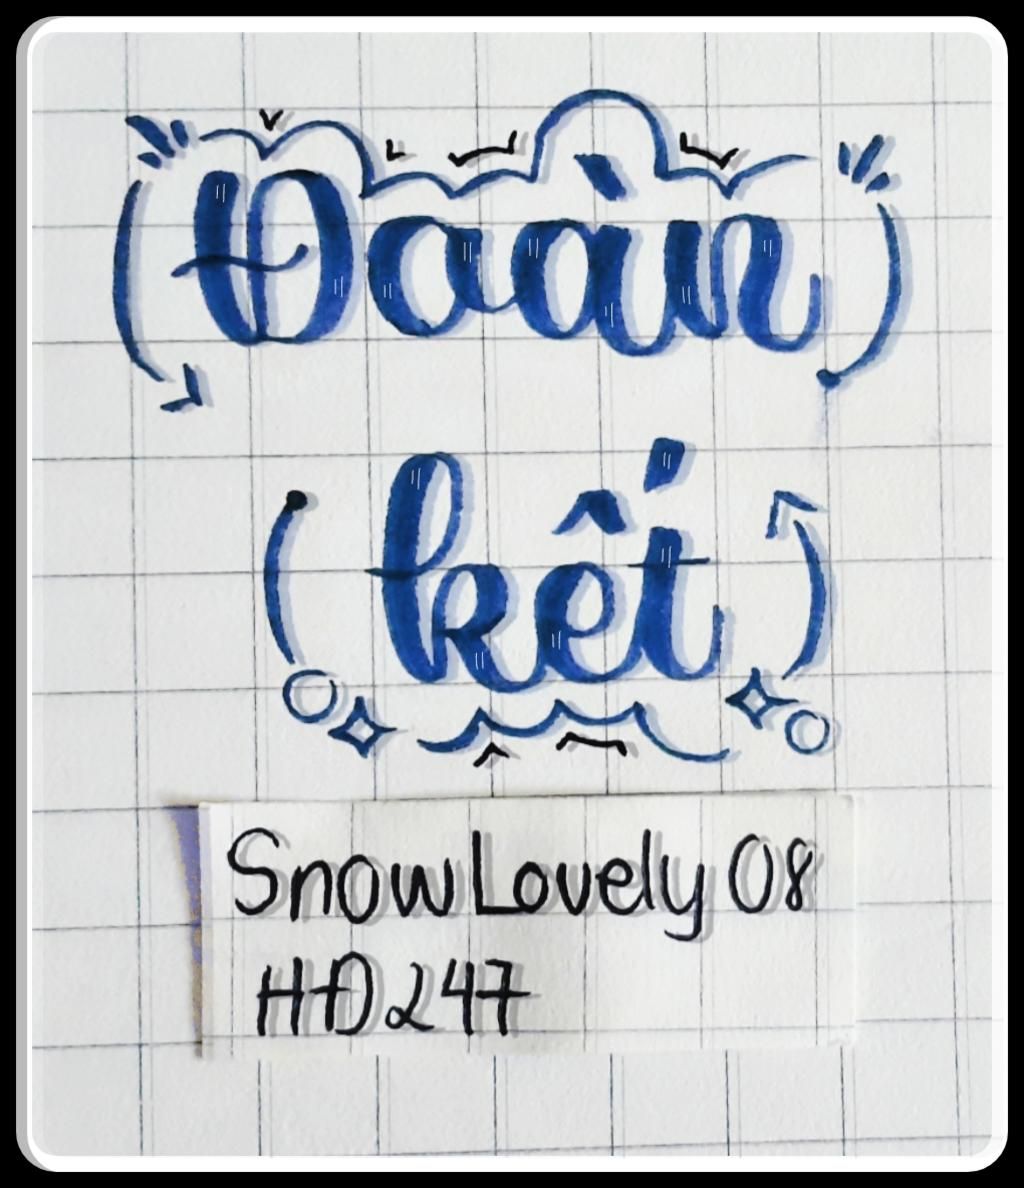 Đoàn
kết
SnowLovely 08
HĐ 247